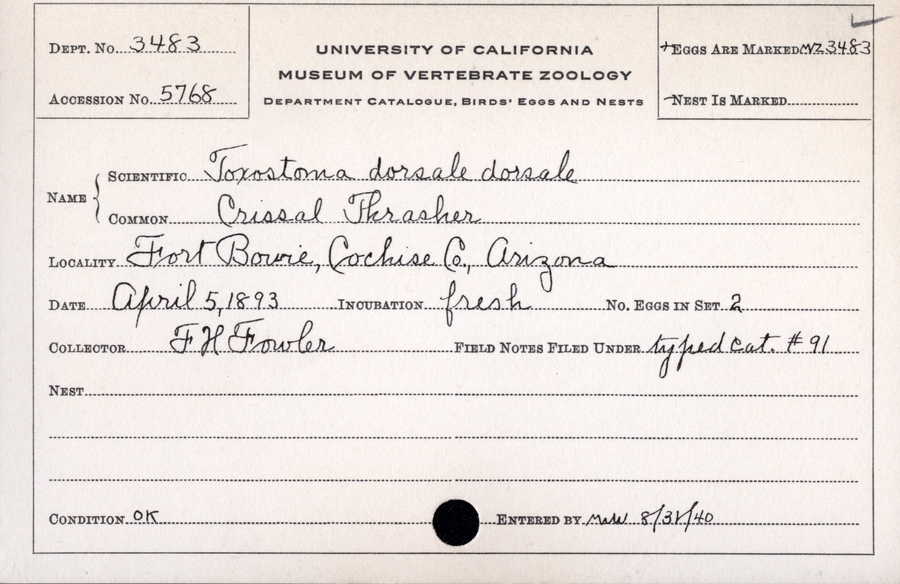 Dept. No. 3483
UNIVERSITY OF CALIFORNIA
MUSEUM OF VERTEBRATE ZOOLOGY
Department Catalogue, Birds' Eggs and Nests
+Eggs Are Marked MVZ3483
Accession No. 5768
-Nest Is Marked
Name
Scientific Toxostoma dorsale dorsale
Common Crissal Thrasher
Locality Fort Bowie, Cochise Co., Arizona
Date April 5, 1893 Incubation fresh No. Eggs in Set 2
Collector F H Fowler Field Notes Filed Under typed cat. #91
Nest
Condition OK Entered by 8/31/40